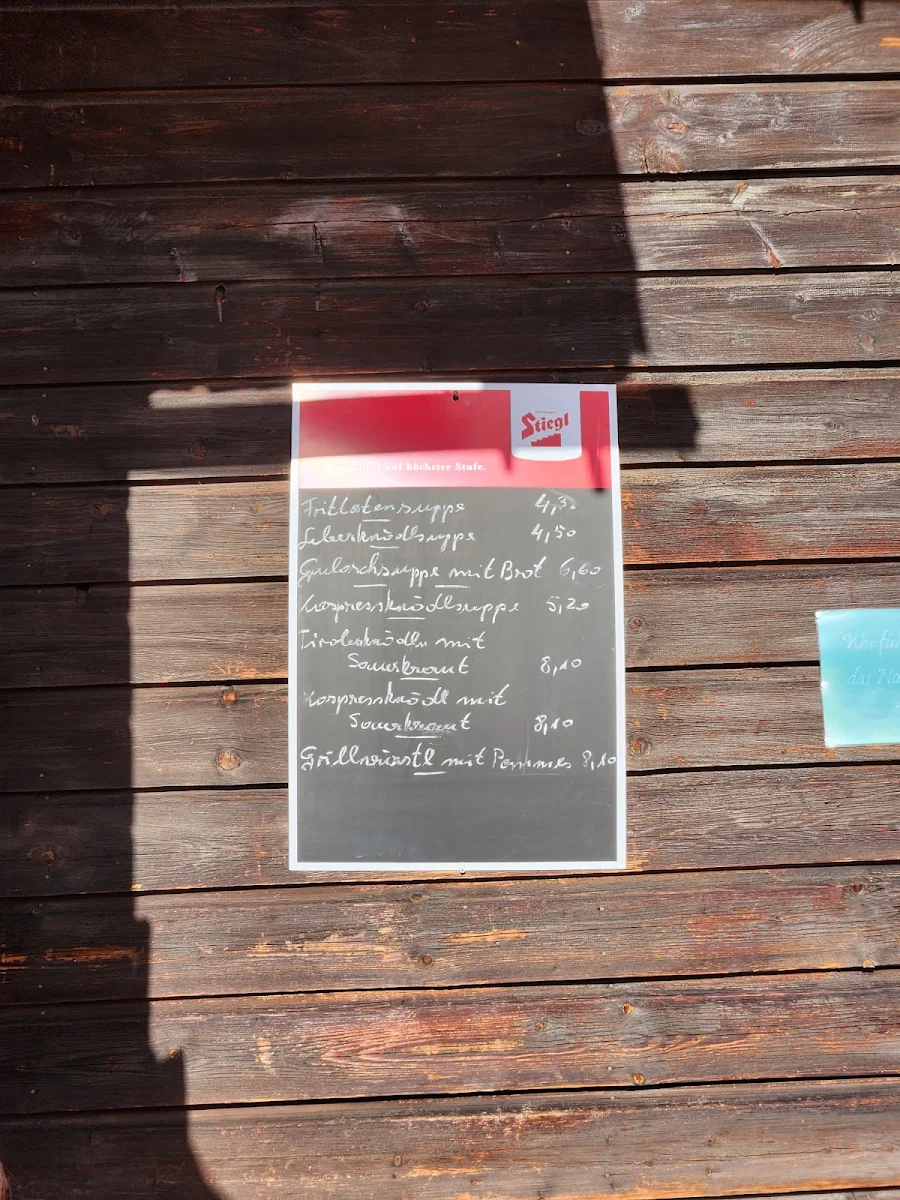 Stiegl
auf höchster Stufe.
Frittatensuppe 4,30
Leberknödlsuppe 4,50
Gulaschsuppe mit Brot 6,60
Kaspressknödlsuppe 5,20
Tirolerknödln mit
Sauerkraut 8,10
Kaspressknödl mit
Sauerkraut 8,10
Grillwürstl mit Pommes 8,10
das